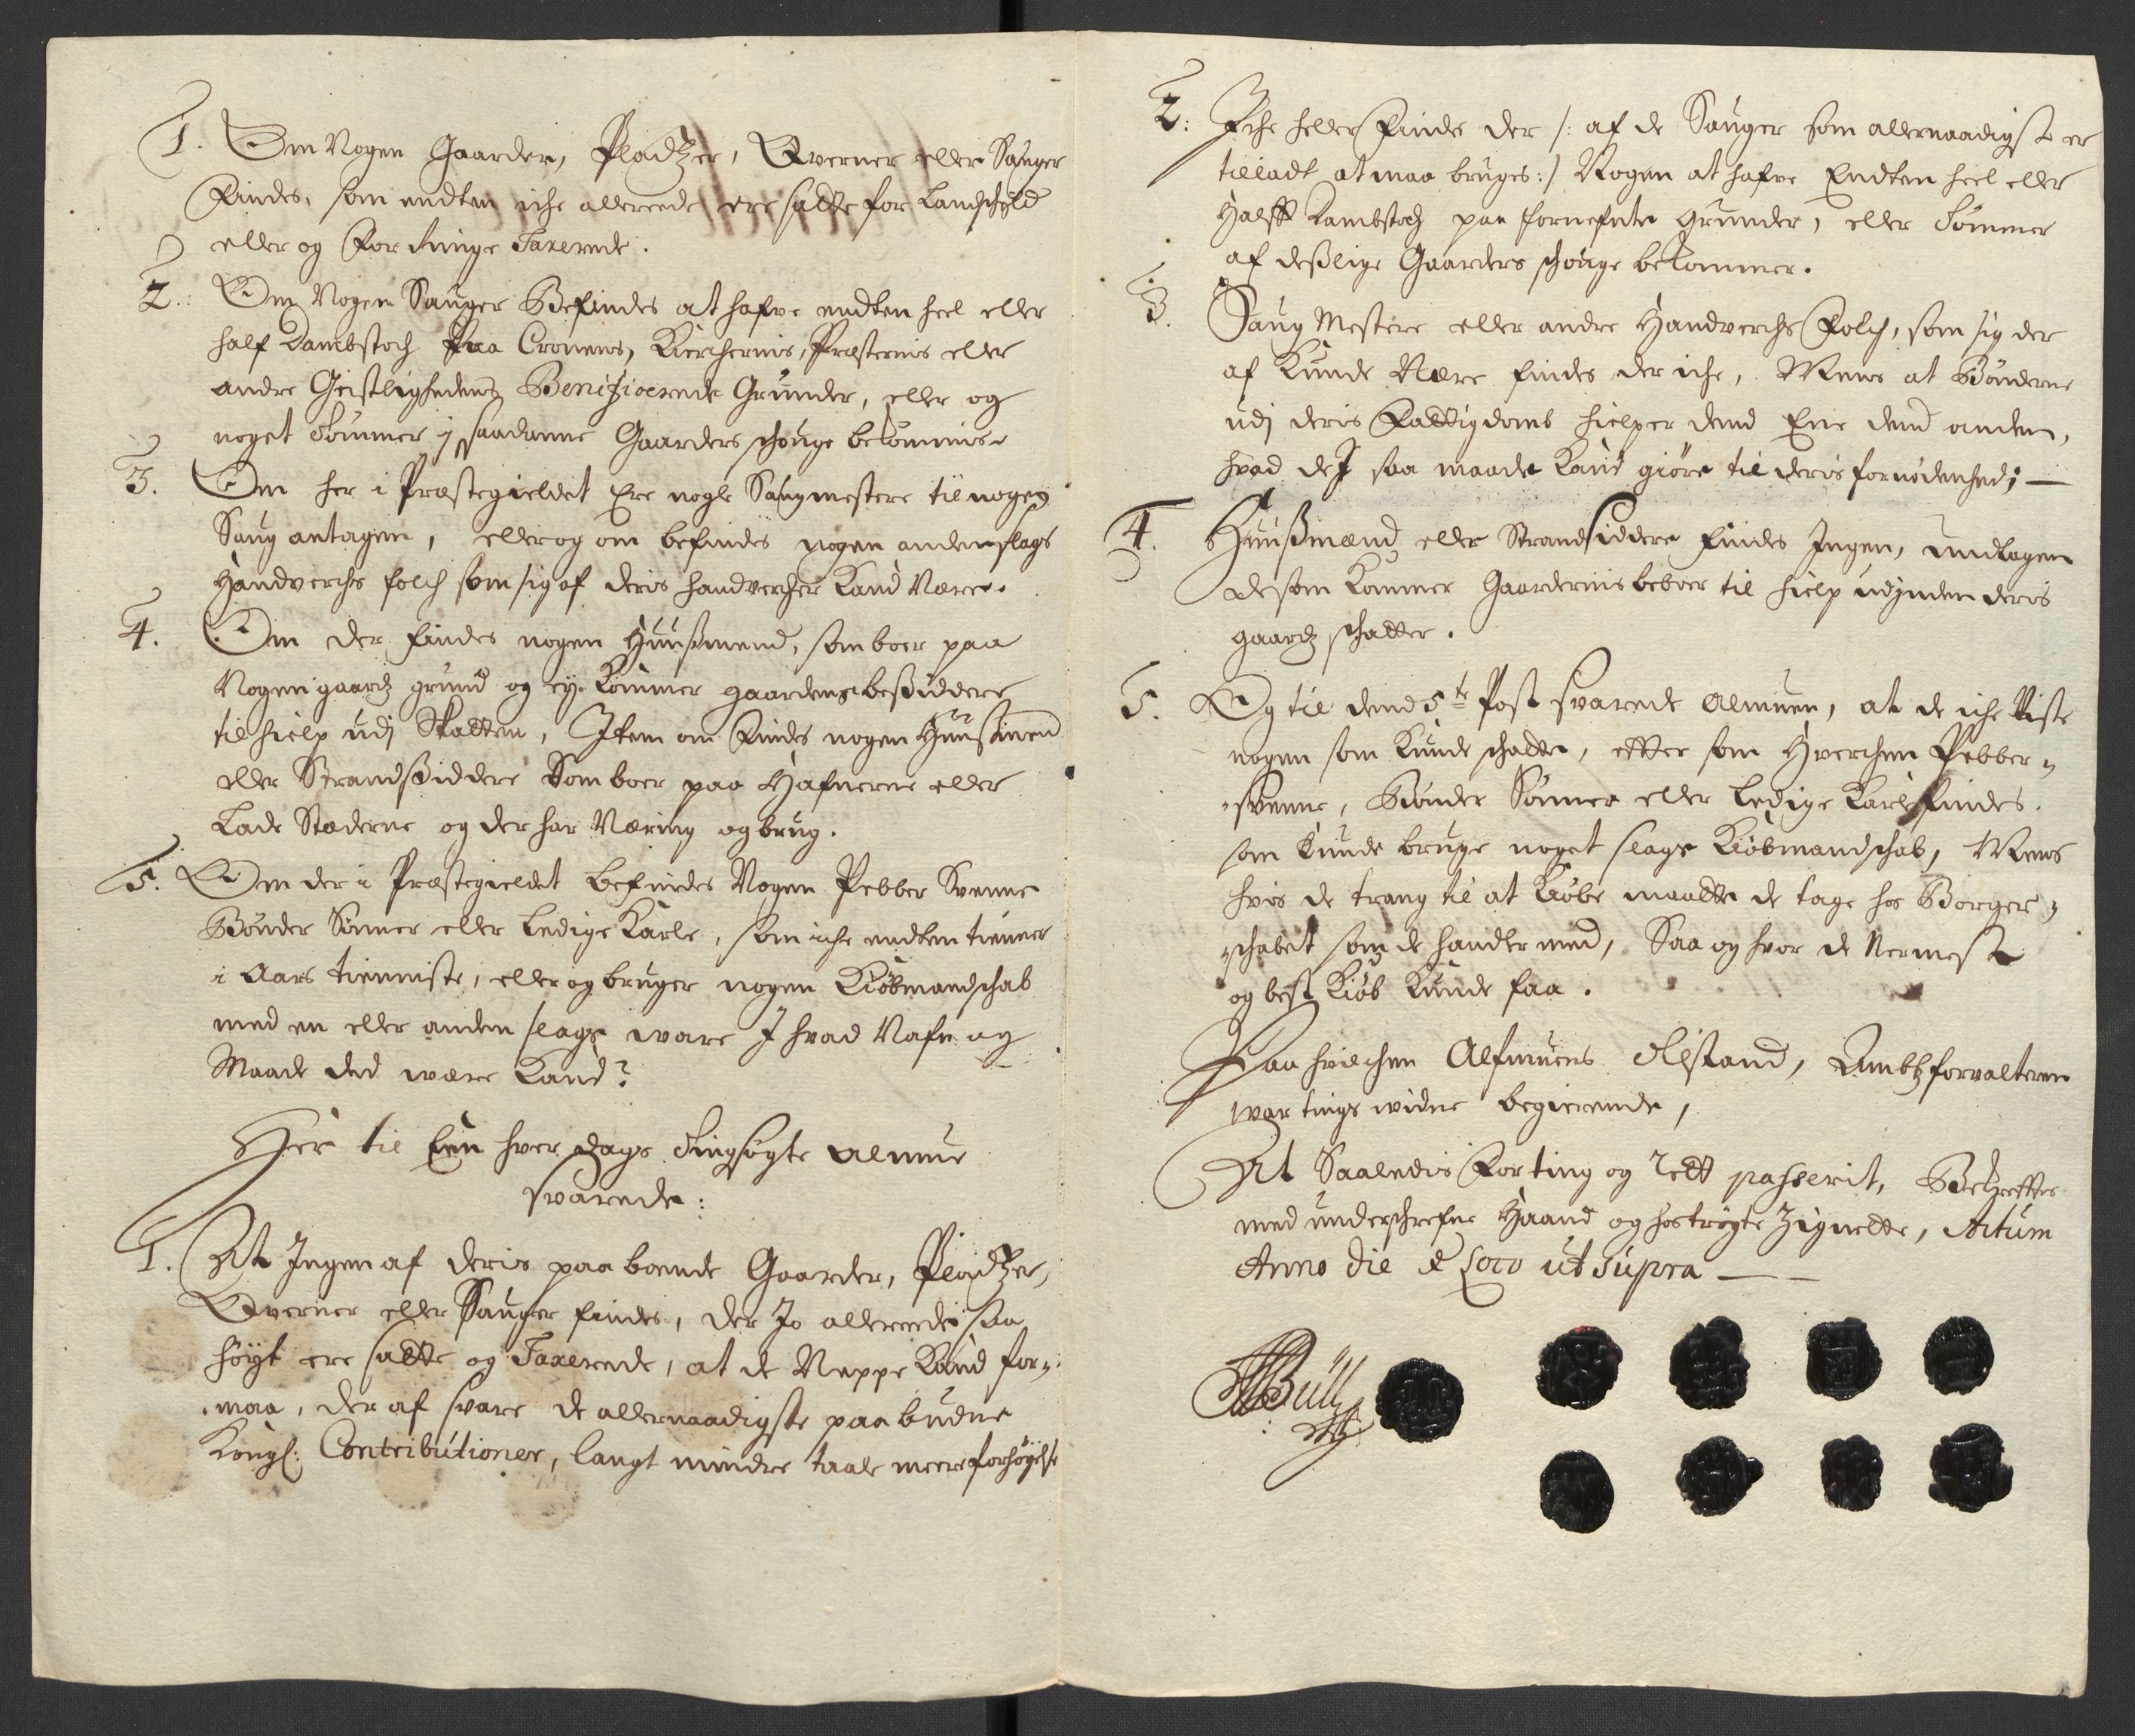 1. Om Nogen Gaarder, Pladtzer, Qverner eller Sauger
Findes, som endten iche allereede ere satte for Landschyld
eller og For Ringe Taxerede.
2. Om Nogen Sauger Befindes at hafve endten heel eller
half Dambstoch Paa Cronens, Kierchernis, Præsternis eller
andre Geistlighedens Benificerede Grunder, eller og
noget Tømmer j saadanne Gaarders schouge bekommis
3. Om her i Præstegieldet Ere nogle Saugmestere til nogen
Saug antagen, eller og om befindes nogen anden slags
Handverchs folch som sig af deris handvercher Kand Nære.
4. Om der findes nogen Huusmend, som boer paa
Nogen gaardz grund og ey Kommer gaardens besiddere
til hielp udj Skatten, Item om Findes nogen Huusmend
eller Strandsiddere Som boer paa Hafnerne eller
Lade Stæderne og der har Næring og brug.
5. Om der i Præstegieldet befindes Nogen Pebber Svenne
Bønder Sønner eller Ledige Karle, som iche endten tienner
i Aars tienniste, eller og bruger nogen Kiøbmandschab
med en eller anden slags ware I hvad Nafn og
Maade det være Kand?
Her til Een hver dags Tingsøgte Almue
svarede:
1. At Ingen af deris paa boende Gaarder, Pladtzer,
Qverner eller Sauger findes, der Jo allereede saa
høyt ere satte og Taxerede, at de Neppe Kand for-
maa, der af svare de allernaadigste paabudne
Kongl: Contributioner, langt mindre taale meere forhøyelse
2: Iche heller Finde der /: af de Sauger som allernaadigst er
tilladt at maa bruges :/ Nogen at hafve Endten heel eller
Halff Dambstoch paa fornefnte Grunder, eller Tømmer
af deslige Gaarders schouge bekommer.
3. Saug Mestere eller andre Handverchs Folch, som sig der
af Kunde Nære findes der iche, Mens at Bønderne
udj deris Fattigdoms hielper dend Ene dend anden,
hvad de I saa maade Kand giøre til deris fornødenhed; —
4. Huusmænd eller Strandsiddere findes Ingen, undtagen
de som Kommer Gaardernis beboer til hielp udj deris
gaardz schatter.
5. Og til dend 5te Post svarede Almuen, at de iche Viste
nogen som Kunde schatte, efter som Hverchen Pebber-
svenne, Bønder Sønner eller Ledige Karle findes.
som Kunde bruge noget slags Kiøbmandschab, Mens
hvis de trang til at Kiøbe maatte de tage hos Borger-
schabet som de handler med, Saa og hvor de Nermest
og best Kiøb Kunde faa.
Paa hvilchen Allmuens tilstand, Ambtzforvalteren
war tings widne begierende,
At Saaledis For ting og Rett passerit, Bekreffter
med underschrefne Haand og hostrøgte Zignette, Actum
Anno die et Loco ut supra —
Bull